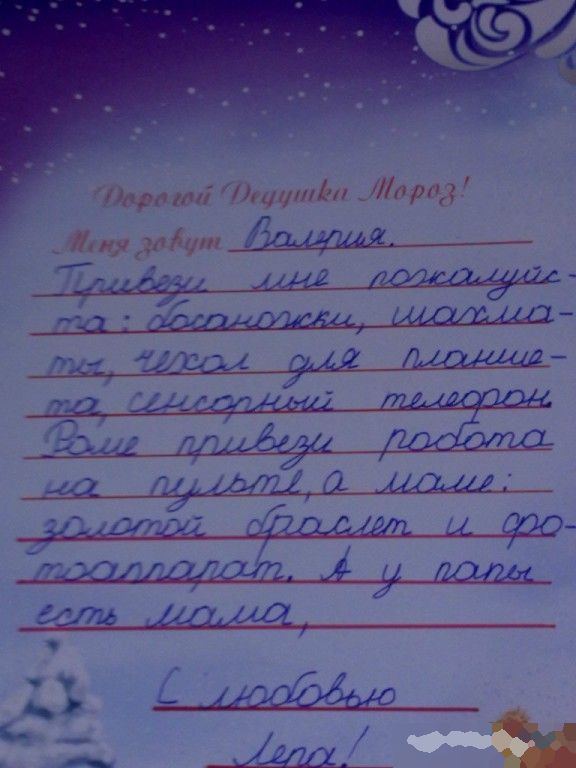 Дорогой Дедушка Мороз!
Меня зовут Валерия.
Привези мне пожалуйс-
та: босаножки, шахма-
ты, чехол для планше-
та, сенсорный телефон.
Роме привези робота
на пульте, а маме:
золотой браслет и фо-
тоаппарат. А у папы
есть мама,
С любовью
Лера!